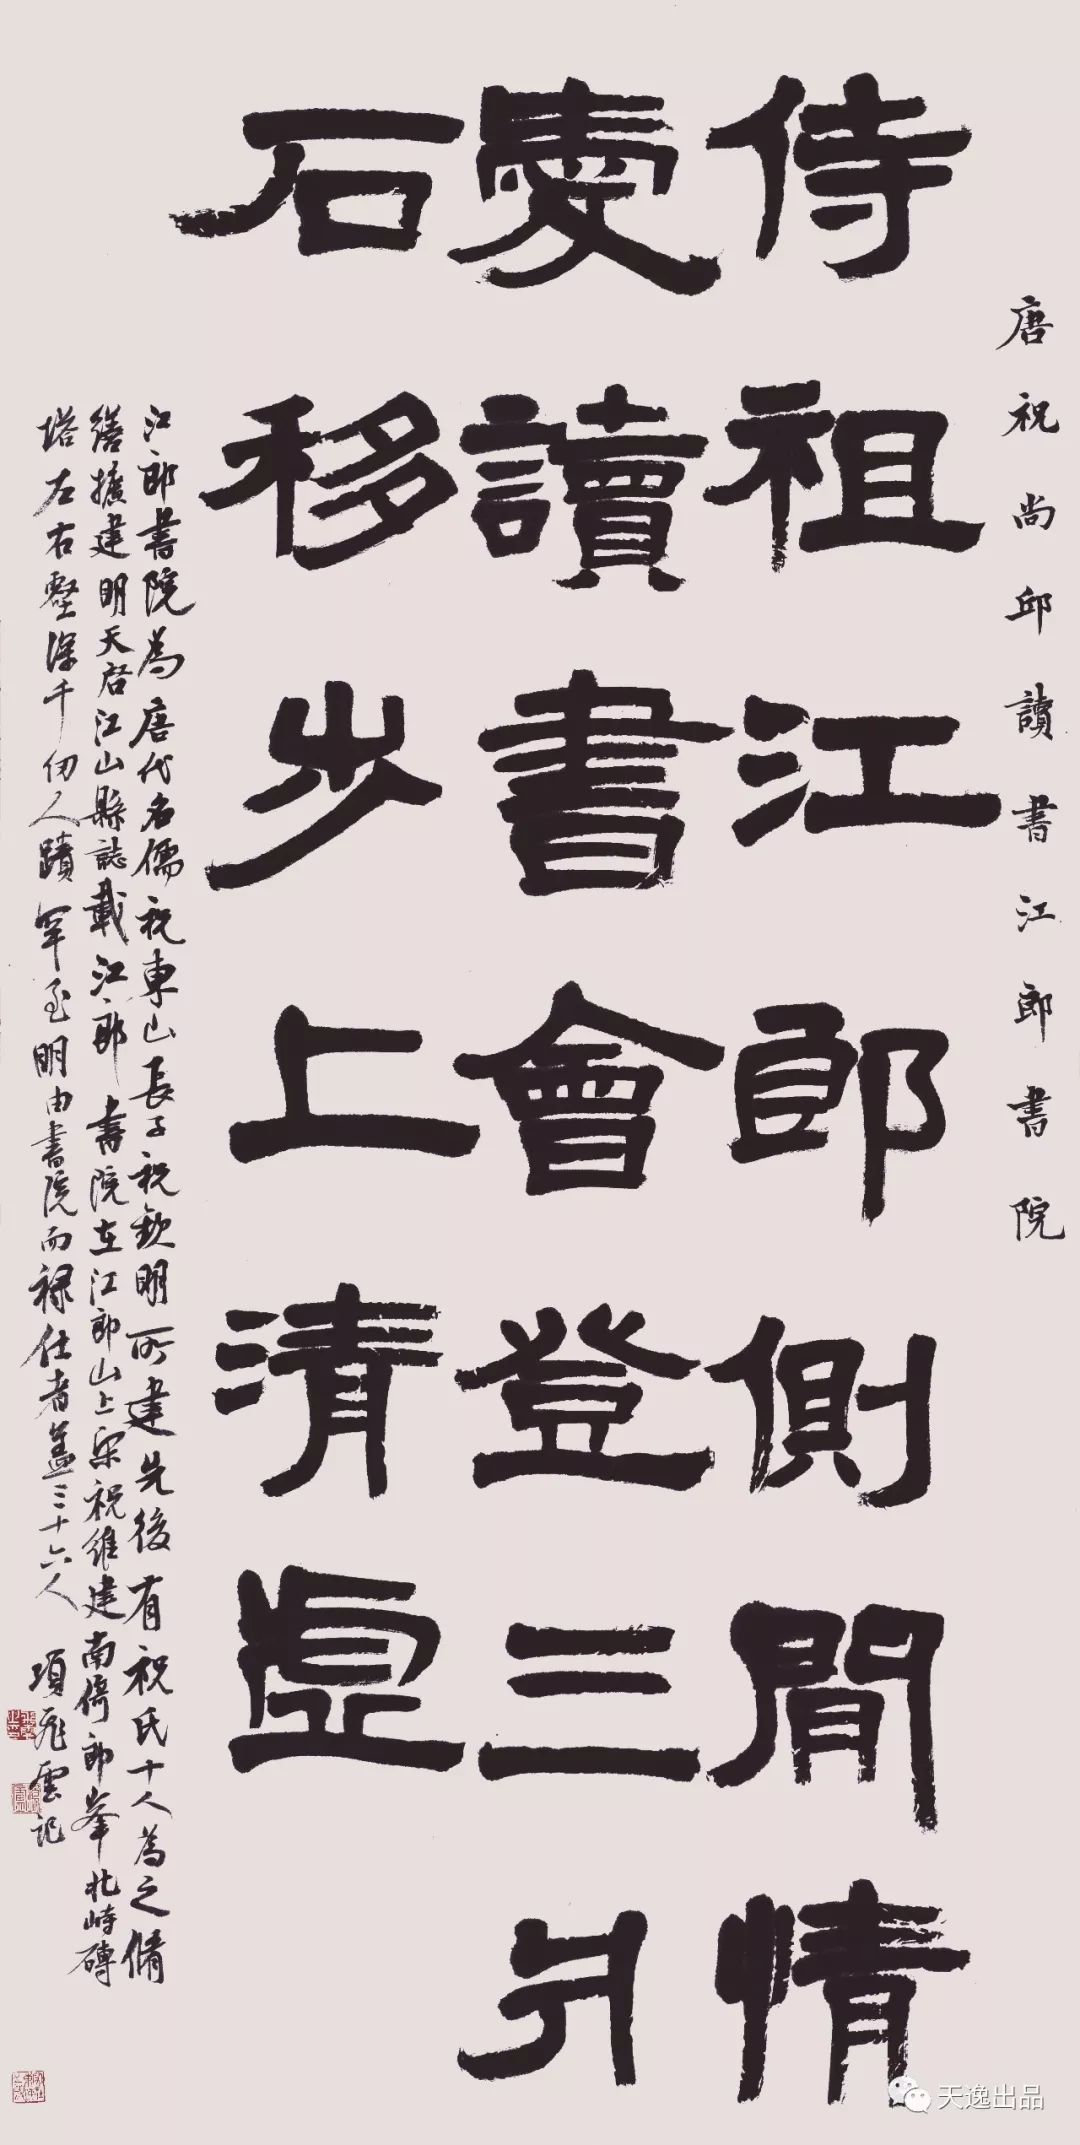 唐祝尚邱讀書江郎書院
侍祖江郎側閒情
愛讀書會登三片
石移步上清虛
江郎書院為唐代名儒祝東山長子祝欽明所建先後有祝氏十人為之脩
繕擴建明天啓江山縣誌載江郎書院在江郎山上宋祝維建南倚郎峯北峙磚
塔左右壑深千仞人蹟罕至明由書院而祿仕者蓋三十六人 項飛雲記
天逸出品